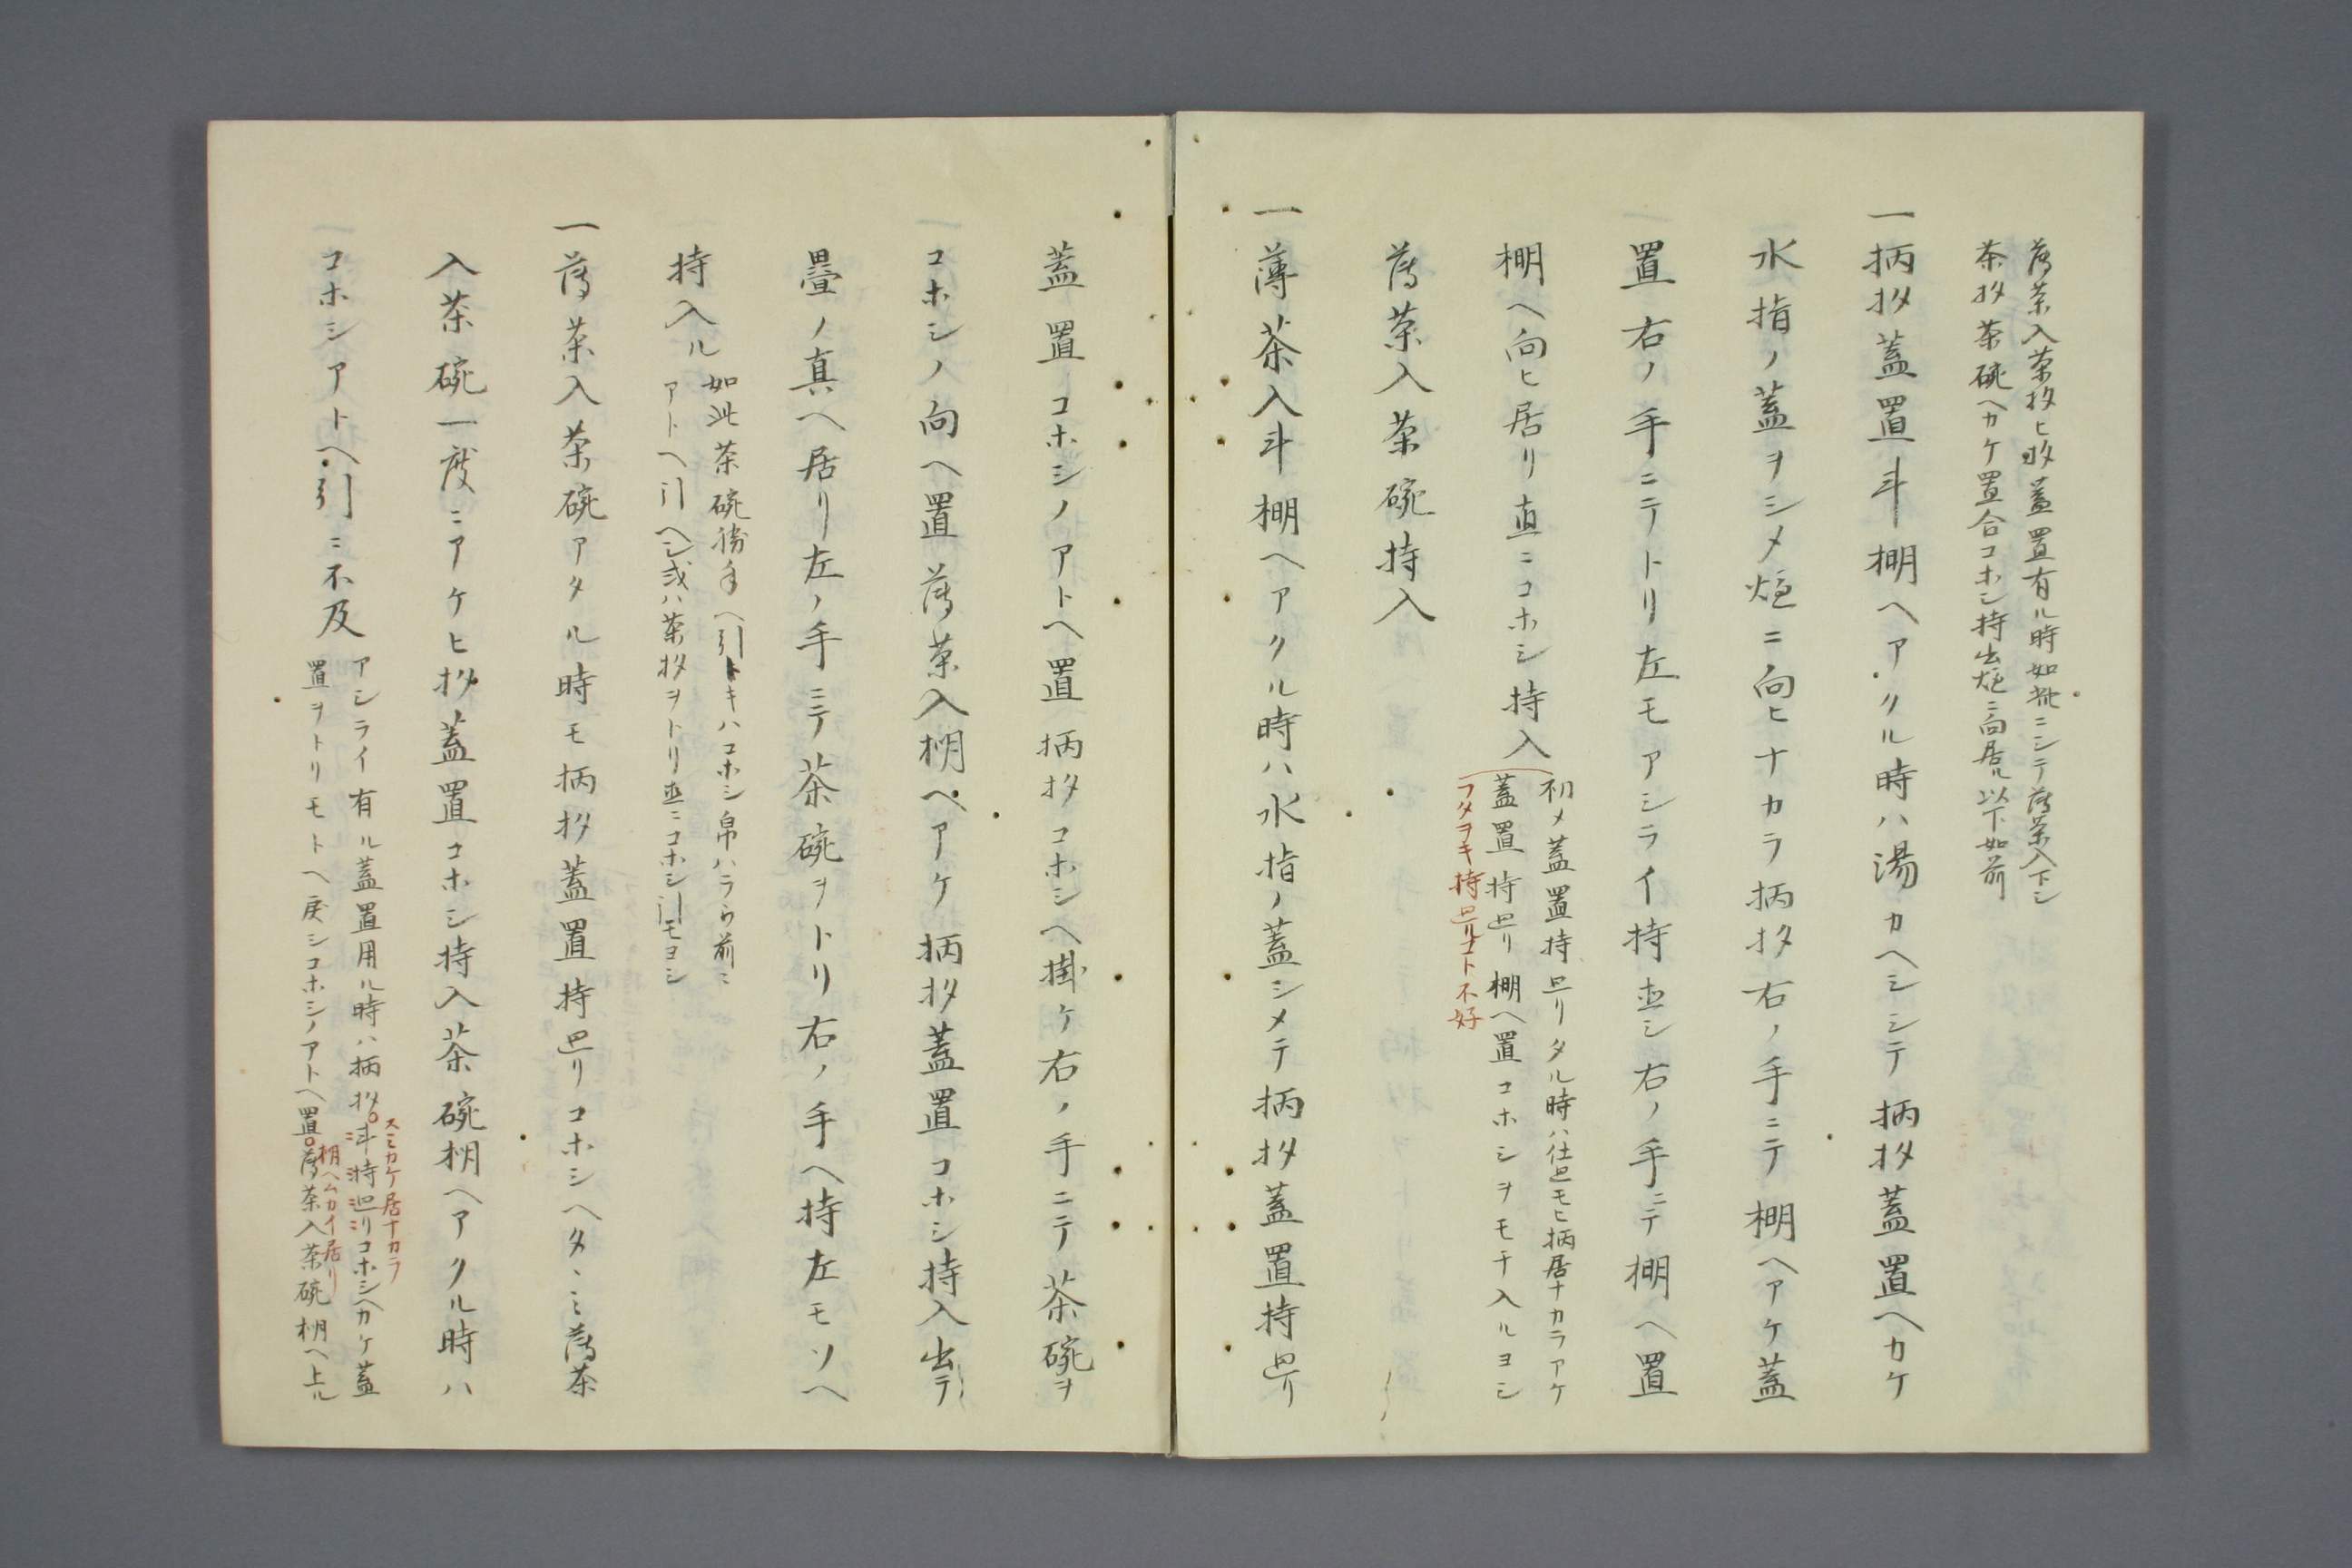 薄茶入茶杓ヒ杓蓋置有ル時如此ニシテ薄茶入下シ
茶杓茶碗ヘカケ置合コホシ持出炉ニ向居ル以下如前
一柄杓蓋置斗棚ヘアクル時ハ湯カヘシシテ柄杓蓋置ヘカケ
水指ノ蓋ヲシメ炉ニ向ヒナカラ柄杓右ノ手ニテ棚ヘアケ蓋
置右ノ手ニテトリ左モアシライ持直シ右ノ手ニテ棚ヘ置
棚ヘ向ヒ居リ直ニコホシ持入
初メ蓋置持出リタル時ハ仕廻モヒ柄居ナカラアケ
蓋置持出リ棚ヘ置コホシヲモチ入ルヨシ
フタヲキ持出リコト不好
薄茶入茶碗持入
一薄茶入斗棚ヘアクル時ハ水指ノ蓋シメテ柄杓蓋置持出リ
蓋置コホシノアトヘ置柄杓コホシヘ掛ケ右ノ手ニテ茶碗ヲ
コホシノ向ヘ置薄茶入棚ヘアケ柄杓蓋置コホシ持入出テ
畳ノ真ヘ居リ左ノ手ニテ茶碗ヲトリ右ノ手ヘ持左モソヘ
持入ル
如此茶碗勝手ヘ引トキハコホシ帛ハラウ前ニ
アトヘ引ヘシ或ハ茶杓ヲトリ直ニコホシ引モヨシ
一薄茶入茶碗アタル時モ柄杓蓋置持廻リコホシヘタヽミ薄茶
入茶碗一度ニアケヒ杓蓋置コホシ持入茶碗棚ヘアクル時ハ
コホシアトヘ引ニ不及
アシライ有ル蓋置用ル時ハ柄杓斗持廻リコホシヘカケ蓋
スミカケ居ナカラ
置ヲトリモトヘ戻シコホシノアトヘ置薄茶入茶碗棚ヘ上ル
棚ヘムカイ居リ